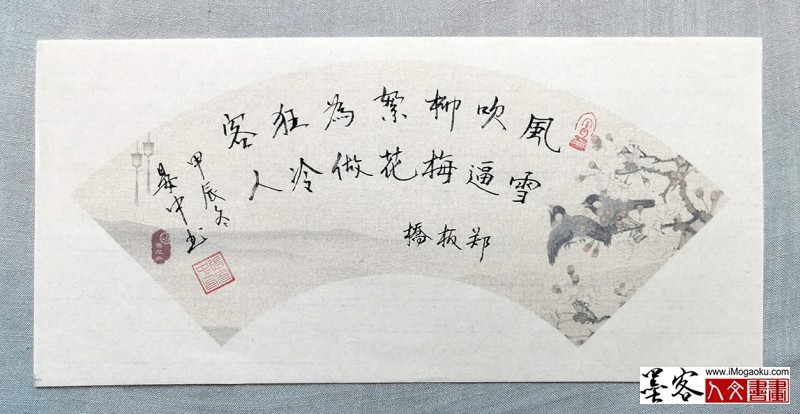 風吹柳絮為狂客
雪逼梅花做冷人
郑板橋
甲辰冬
中书
www.iMogaoku.com
墨客人文書畫